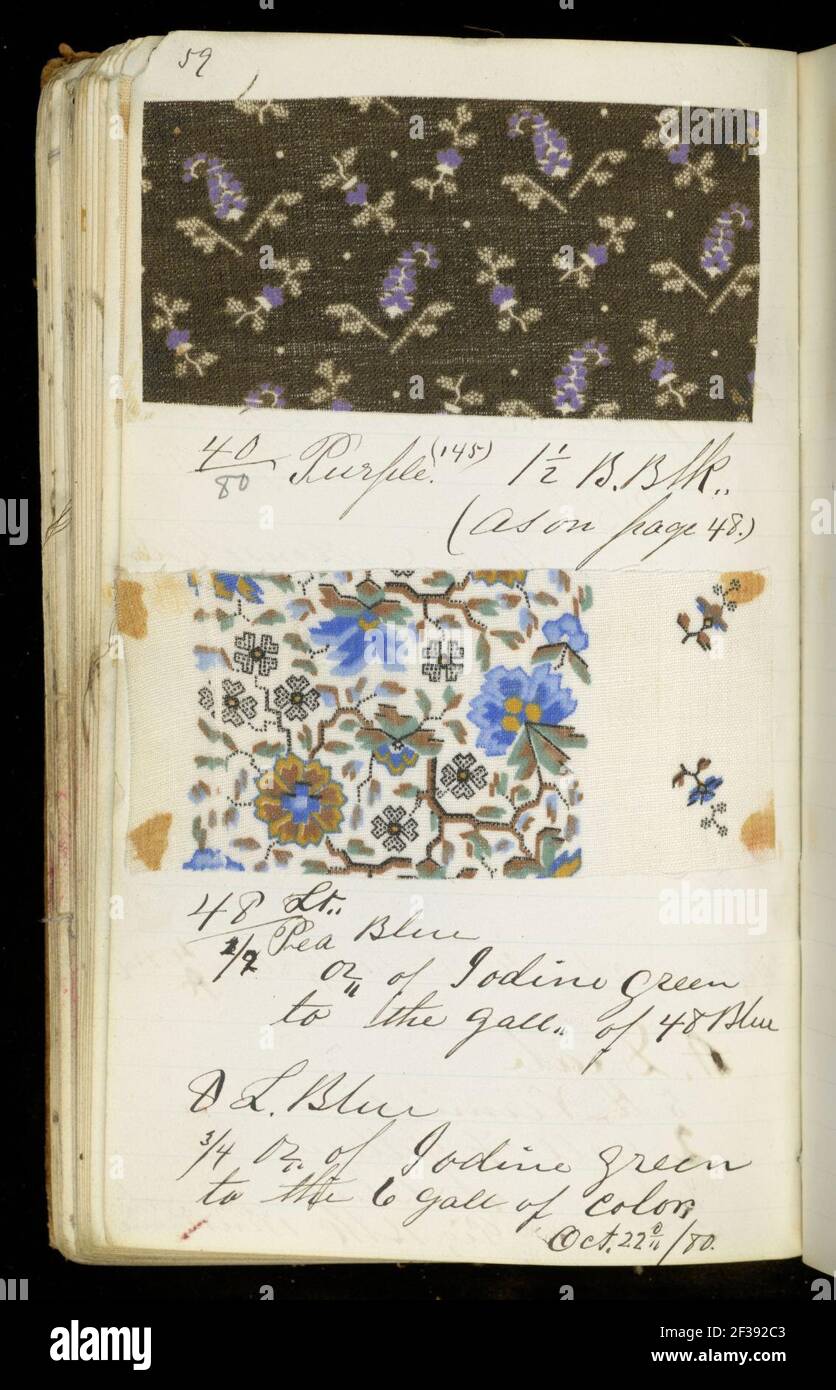 59
40/80 Purple. (145) 1 1/2 B. Blk.
(as on page 48.)
48 Lt. Pea Blue
1/2 oz of Iodine green
to the gall. of 48 Blue
L. Blue
3/4 oz of Iodine green
to the 6 gall of color
Oct. 22 /80.
alamy
Image ID: 2F392C3
www.alamy.com